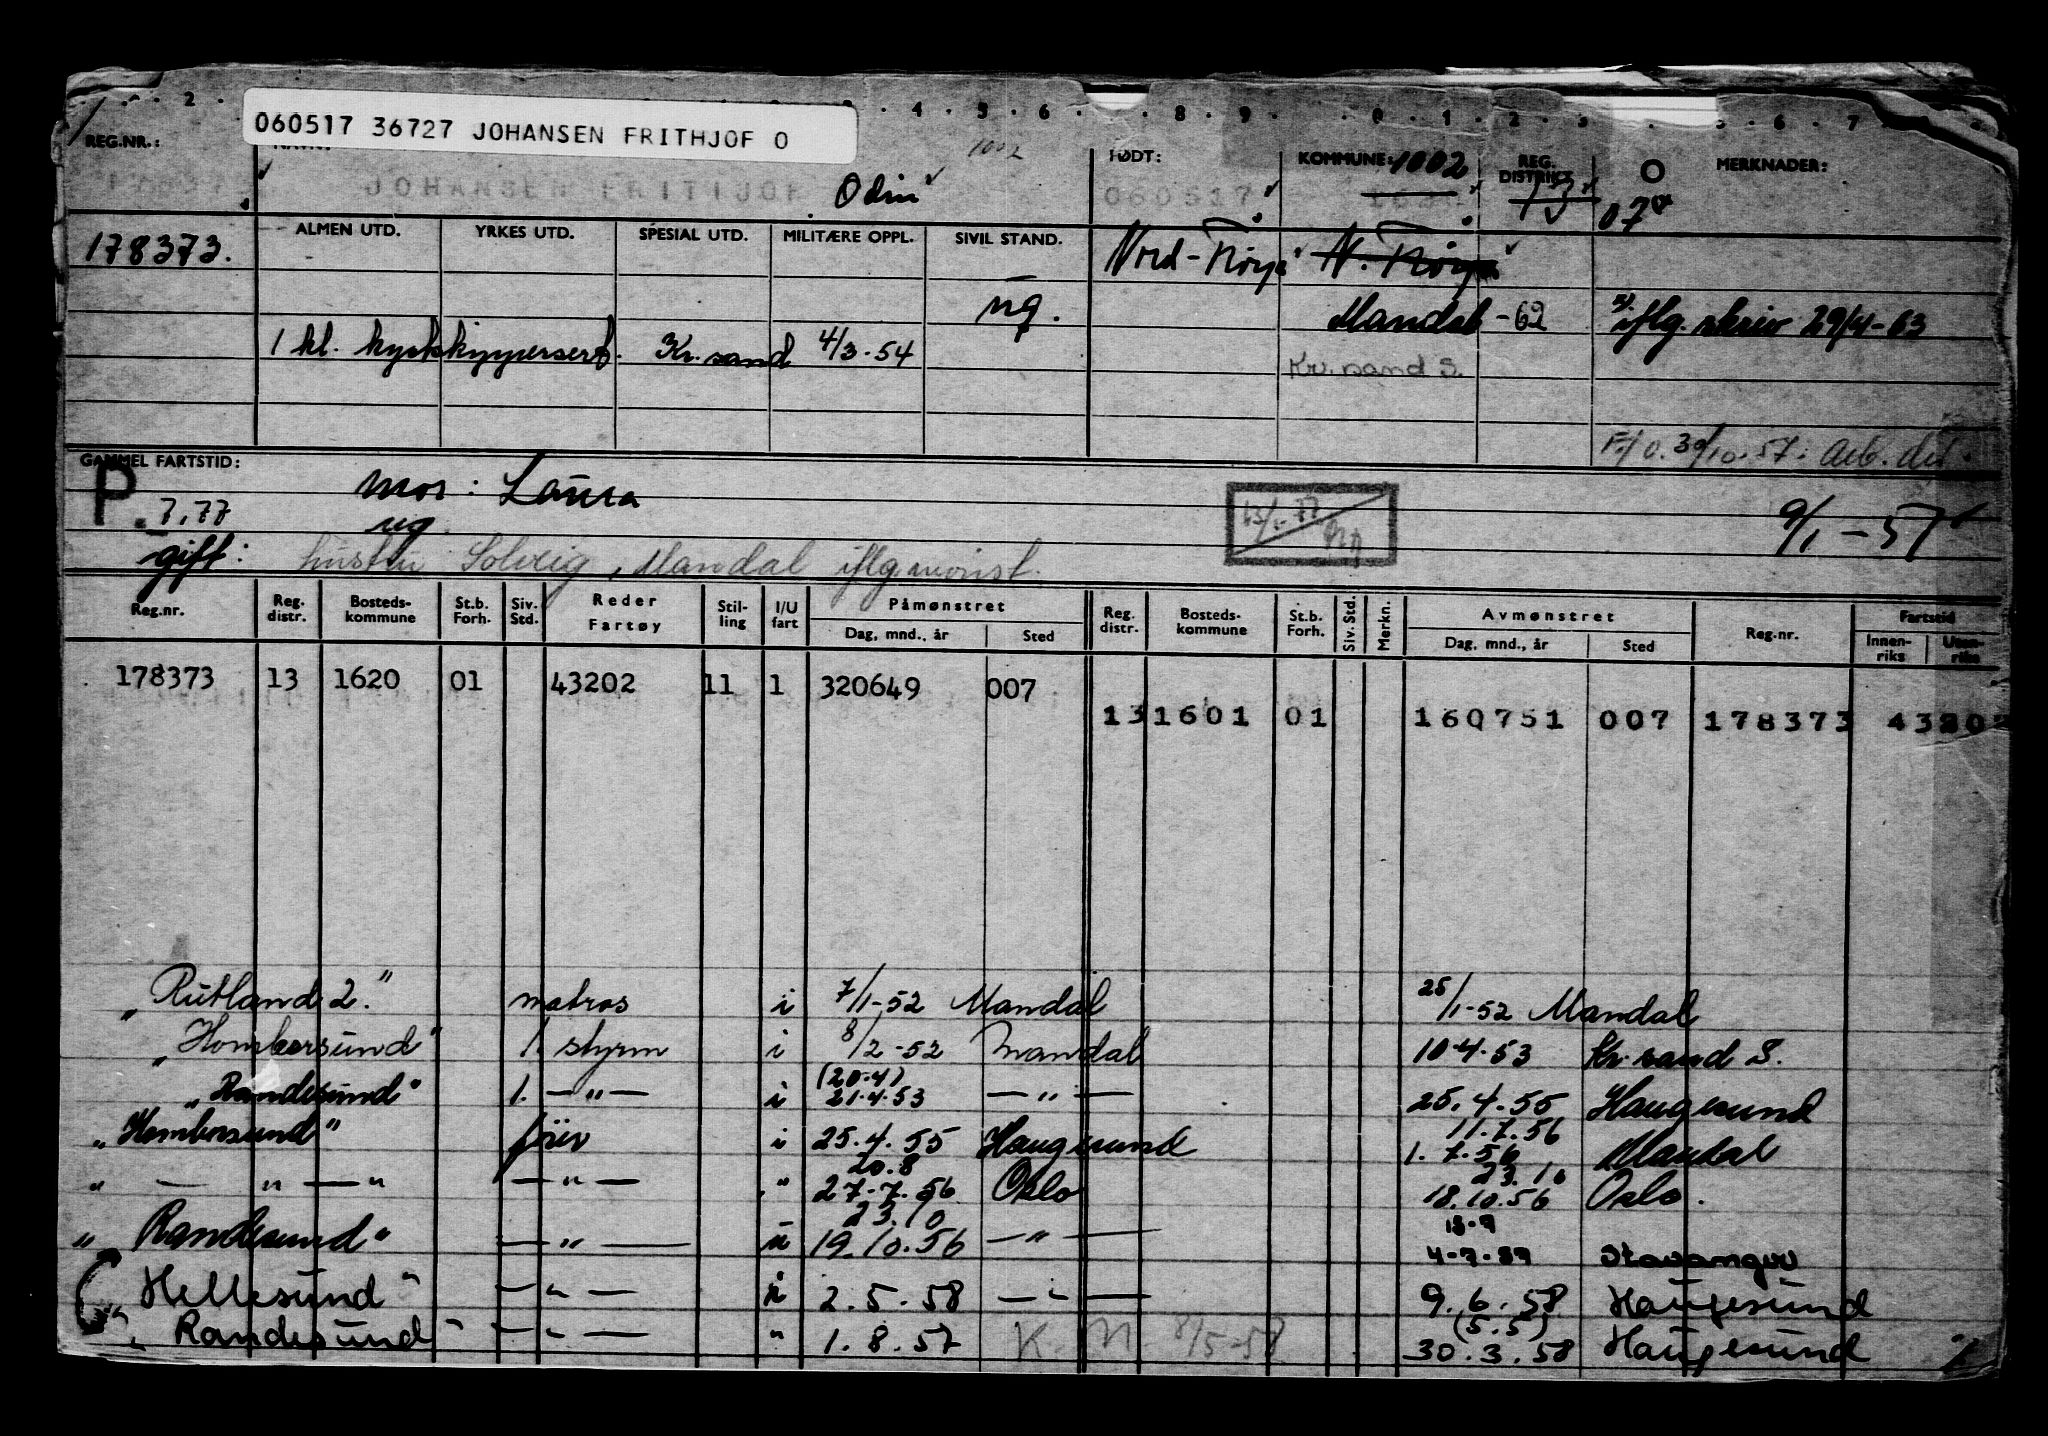 060517 36727 JOHANSEN FRITHJOF O
REG.NR.: 1002 FØDT: KOMMUNE: 1002 REG. DISTRIKT 13 O MERKNADER:
JOHANSEN FRITIJOF Odin 060517 07
178373. ALMEN UTD. YRKES UTD. SPESIAL UTD. MILITÆRE OPPL. SIVIL STAND. Nord-Frøya N. Frøya
ug. Mandal -62 iflg. skriv 29/4-63
1 kl. kystskippersert. Kr.sand 4/3.54 Kr.sand S.
30/10.57.
GAMMEL FARTSTID:
P. 7.77 mor: Laura 9/1-57
ug.
gift: hustru Solveig, Mandal iflg mønst.
Reg.nr. Reg. distr. Bosteds-kommune St.b. Forh. Siv. Std. Reder Fartøy Stil-ling I/U fart Påmønstret Dag, mnd., år Sted Reg. distr. Bosteds-kommune St.b. Forh. Siv. Std. Merkn. Avmønstret Dag, mnd., år Sted Reg.nr. Fartstid Innen-riks Uten-riks
178373 13 1620 01 43202 11 1 320649 007
13 1601 01 160751 007 178373 43202
"Rutland 2." matros i 7/1-52 Mandal 25/1-52 Mandal
"Homborsund" 1. styrm i 8/2-52 Mandal 10.4.53 Kr.sand S.
"Randesund" 1. —"— i (20.4) 21.4.53 —"— 25.4.55 Haugesund
"Homborsund" fører i 25.4.55 Haugesund 11.7.56 1.7.56 Mandal
" — " — " —"— " 20.8 27.7.56 Oslo 23.10 18.10.56 Oslo.
"Randesund" —"— 23.10 19.10.56 —"— 13.9 4.7.57 Stavanger
"Hellesund" —"— i 2.5.58 —"— 9.6.58 Haugesund
"Randesund" —"— " 1.8.57 K. M 8/5-58 (5.5) 30.3.58 Haugesund